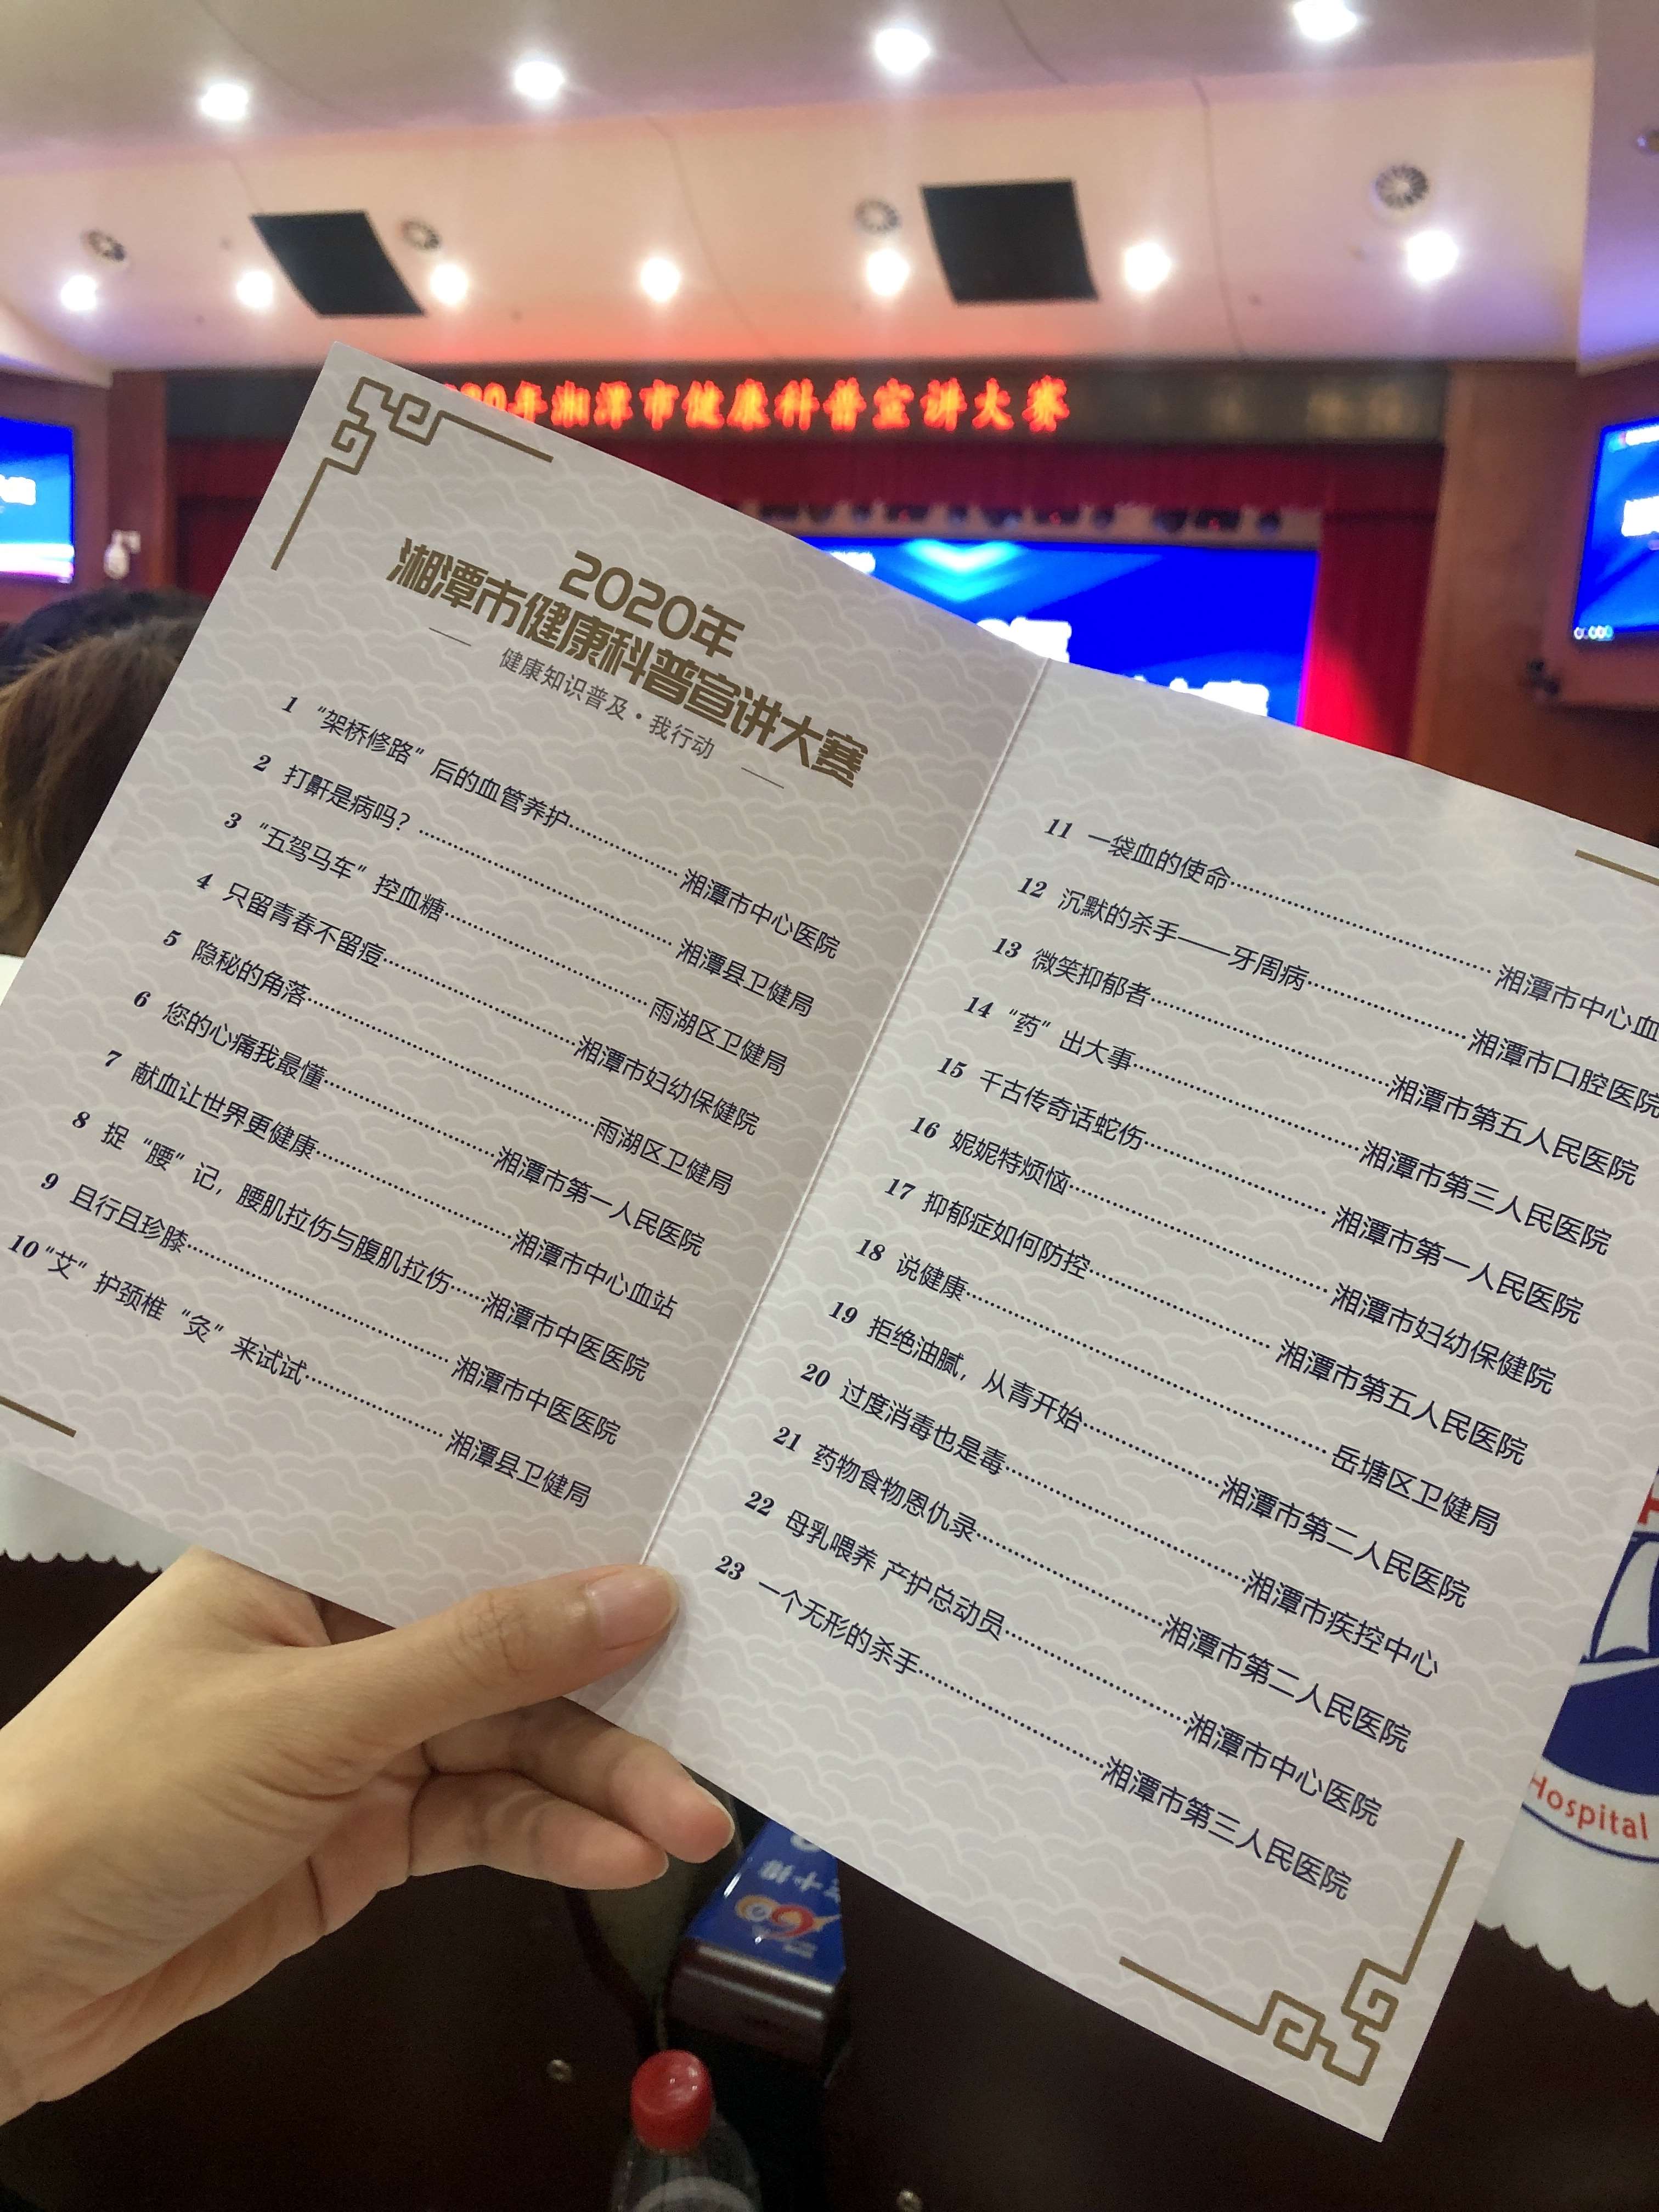 20年湘潭市健康科普宣讲大赛
2020年
湘潭市健康科普宣讲大赛
健康知识普及·我行动
1 “架桥修路”后的血管养护……湘潭市中心医院
2 打鼾是病吗?……湘潭县卫健局
3 “五驾马车”控血糖……雨湖区卫健局
4 只留青春不留痘……湘潭市妇幼保健院
5 隐秘的角落……雨湖区卫健局
6 您的心痛我最懂……湘潭市第一人民医院
7 献血让世界更健康……湘潭市中心血站
8 捉“腰”记，腰肌拉伤与腹肌拉伤……湘潭市中医医院
9 且行且珍膝……湘潭市中医医院
10 “艾”护颈椎 “灸”来试试……湘潭县卫健局
11 一袋血的使命……湘潭市中心血
12 沉默的杀手——牙周病……湘潭市口腔医院
13 微笑抑郁者……湘潭市第五人民医院
14 “药”出大事……湘潭市第三人民医院
15 千古传奇话蛇伤……湘潭市第一人民医院
16 妮妮特烦恼……湘潭市妇幼保健院
17 抑郁症如何防控……湘潭市第五人民医院
18 说健康……岳塘区卫健局
19 拒绝油腻，从青开始……湘潭市第二人民医院
20 过度消毒也是毒……湘潭市疾控中心
21 药物食物恩仇录……湘潭市第二人民医院
22 母乳喂养 产护总动员……湘潭市中心医院
23 一个无形的杀手……湘潭市第三人民医院
Hospital